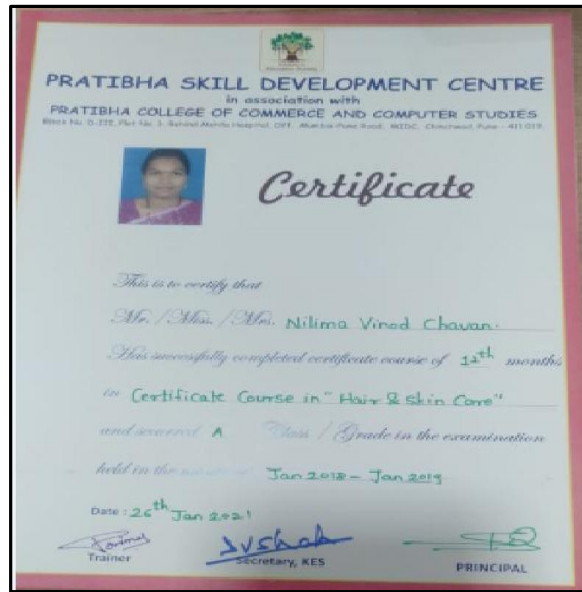 PRATIBHA SKILL DEVELOPMENT CENTRE
in association with
PRATIBHA COLLEGE OF COMMERCE AND COMPUTER STUDIES
Block No. D-III, Plot No. 3, Behind Mehta Hospital, Off. Mumbai-Pune Road, MIDC, Chinchwad, Pune - 411 019.
Certificate
This is to certify that
Mr. / Miss. / Mrs. Nilima Vinod Chavan.
Has successfully completed certificate course of 12th months
in Certificate Course in "Hair & Skin Care"
and secured A Class / Grade in the examination
held in the of Jan 2018 - Jan 2019
Date : 26th Jan 2021
Trainer
Secretary, KES
PRINCIPAL